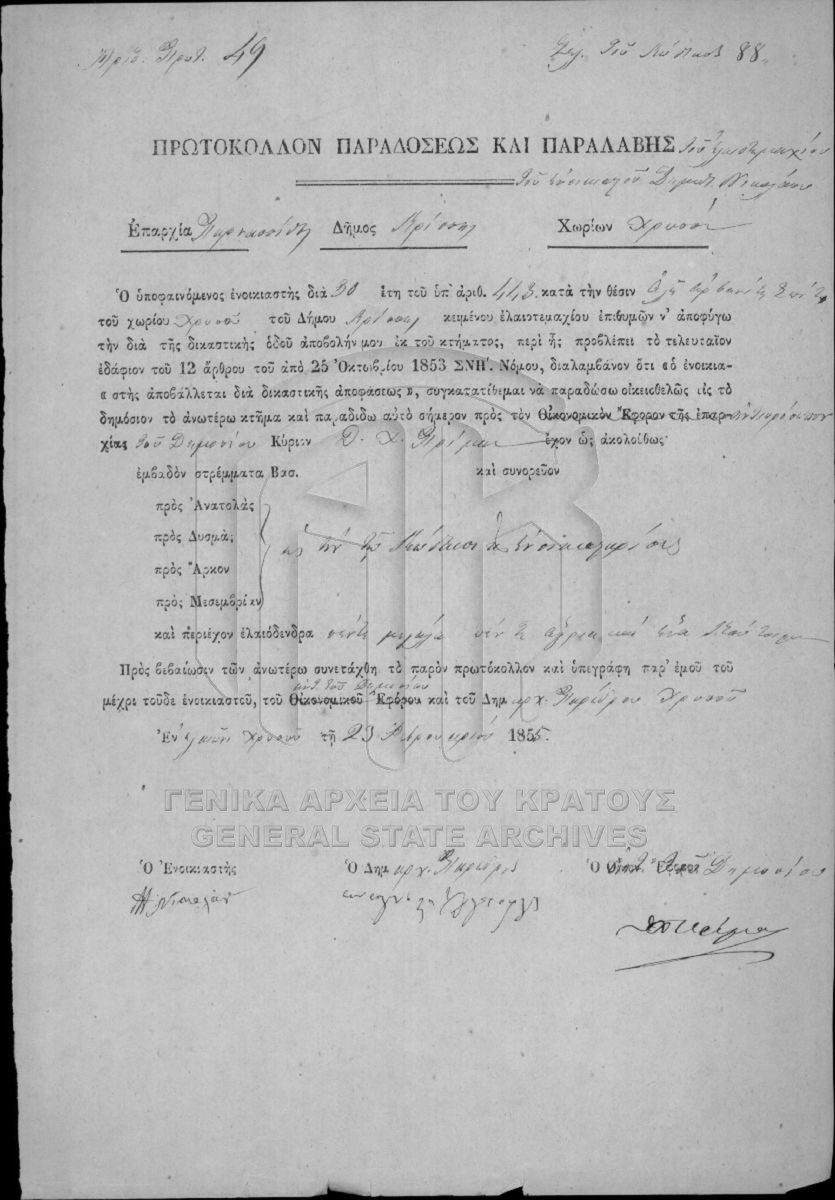 Ἀριθ. Πρωτ. 49
88
ΠΡΩΤΟΚΟΛΛΟΝ ΠΑΡΑΔΟΣΕΩΣ ΚΑΙ ΠΑΡΑΛΑΒΗΣ τοῦ ἐλαιοτεμαχίου
τοῦ ἐνοικιαστοῦ Δημητ. Νικολάου
Ἐπαρχία Παρνασσίδος Δῆμος Κρίσσης Χωρίων Χρυσοῦ
Ὁ ὑποφαινόμενος ἐνοικιαστὴς διὰ 30 ἔτη τοῦ ὑπ' ἀριθ. 443 κατὰ τὴν θέσιν
τοῦ χωρίου Χρυσοῦ τοῦ Δήμου Κρίσσης κειμένου ἐλαιοτεμαχίου ἐπιθυμῶν ν' ἀποφύγω
τὴν διὰ τῆς δικαστικῆς ὁδοῦ ἀποβολήν μου ἐκ τοῦ κτήματος, περὶ ἧς προβλέπει τὸ τελευταῖον
ἐδάφιον τοῦ 12 ἄρθρου τοῦ ἀπὸ 25 Ὀκτωβρίου 1853 ΣΝΗ'. Νόμου, διαλαμβάνον ὅτι «ὁ ἐνοικια-
« στὴς ἀποβάλλεται διὰ δικαστικῆς ἀποφάσεως», συγκατατίθεμαι νὰ παραδώσω οἰκειοθελῶς εἰς τὸ
δημόσιον τὸ ἀνωτέρω κτῆμα καὶ παραδίδω αὐτὸ σήμερον πρὸς τὸν Οἰκονομικὸν Ἔφορον τῆς ἐπαρ- ἀντιπρόσωπον
χίας τοῦ Δημοσίου Κύριον Δ. Χ. Πρίμαν ἔχον ὡς ἀκολούθως·
ἐμβαδὸν στρέμματα Βασ. καὶ συνορεῦον
πρὸς Ἀνατολὰς
πρὸς Δυσμὰς
πρὸς Ἄρκον
πρὸς Μεσεμβρίαν
ὡς ἐν τῷ
καὶ περιέχον ἐλαιόδενδρα πέντε μεγάλα πέντε ἄγρια καὶ ἕνα
Πρὸς βεβαίωσιν τῶν ἀνωτέρω συνετάχθη τὸ παρὸν πρωτόκολλον καὶ ὑπεγράφη παρ' ἐμοῦ τοῦ
ἀντ. τοῦ Δημοσίου
μέχρι τοῦδε ἐνοικιαστοῦ, τοῦ Οἰκονομικοῦ Ἐφόρου καὶ τοῦ Δημαρχ. Παρέδρου Χρυσοῦ
Ἐν Χρυσοῦ τῇ 23 Φεβρουαρίου 1855.
ΓΕΝΙΚΑ ΑΡΧΕΙΑ ΤΟΥ ΚΡΑΤΟΥΣ
GENERAL STATE ARCHIVES
Ὁ Ἐνοικιαστής Ὁ Δημαρχ. Πάρεδρος Ὁ Οἰκ. Ἔφορ. τοῦ Δημοσίου